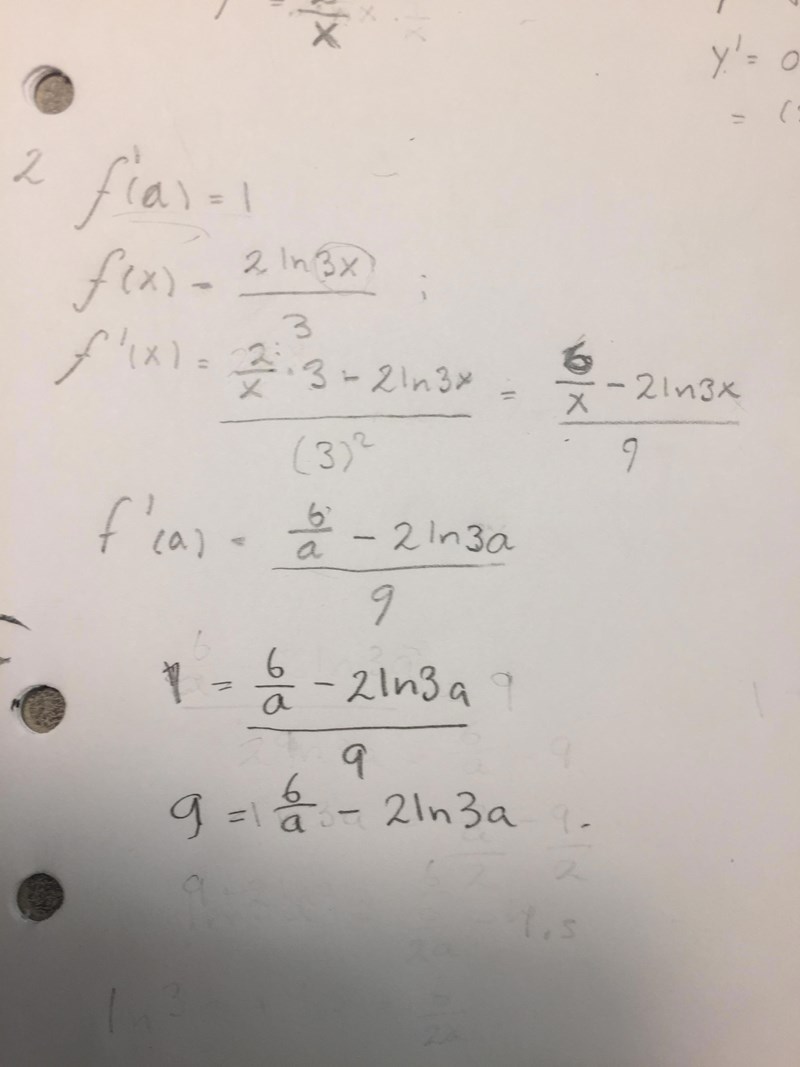 = 2/x
y' = 0
= (
2 f'(a) = 1
f(x) = (2 ln 3x)/3 ;
f'(x) = (2/x · 3 - 2ln3x)/(3)² = (6/x - 2ln3x)/9
f'(a) = (6/a - 2ln3a)/9
1 = (6/a - 2ln3a)/9
9 = 6/a - 2ln3a